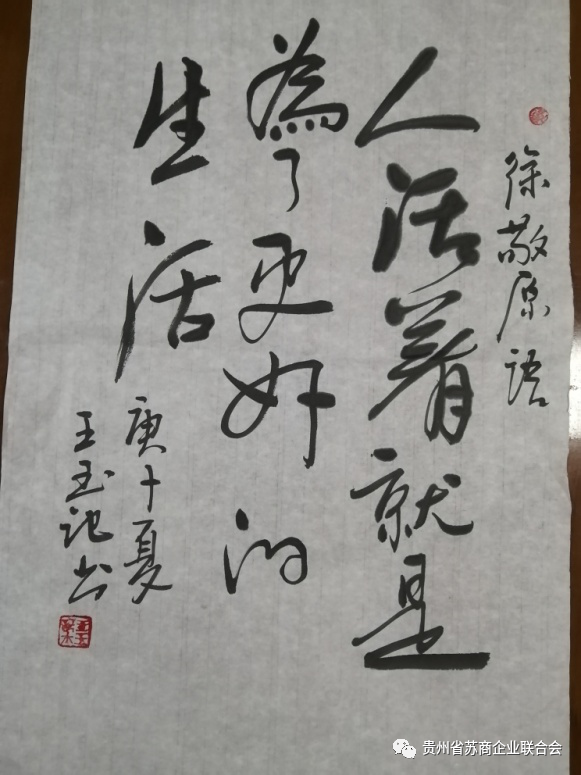 徐敬原语
人活着就是
為了更好的
生活
庚十夏
王玉记书
贵州省苏商企业联合会